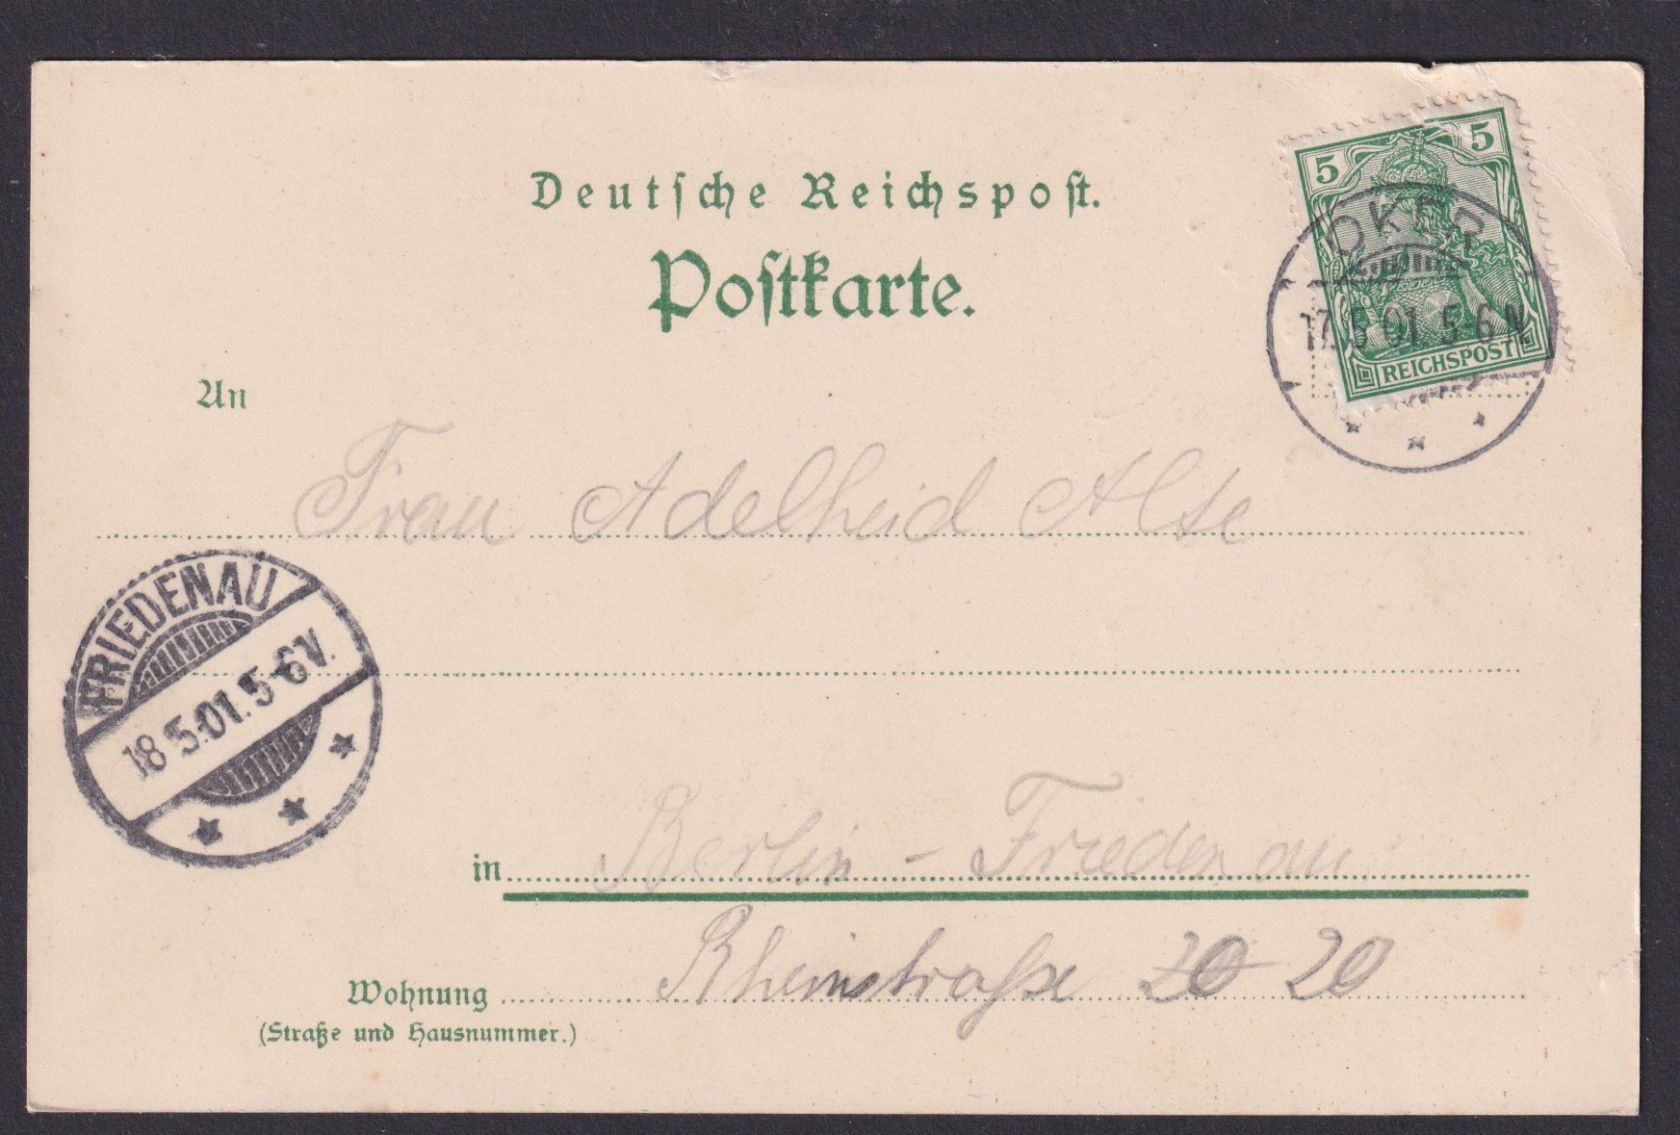 Deutſche Reichspoſt.
Poſtkarte.
5 5
OKER
17.5 01. 5-6 N.
REICHSPOST
An
Frau Adelheid Alte
FRIEDENAU
18 5.01. 5-6V.
in Berlin - Friedenau
Rheinstraße 20 20
Wohnung
(Straße und Hausnummer.)